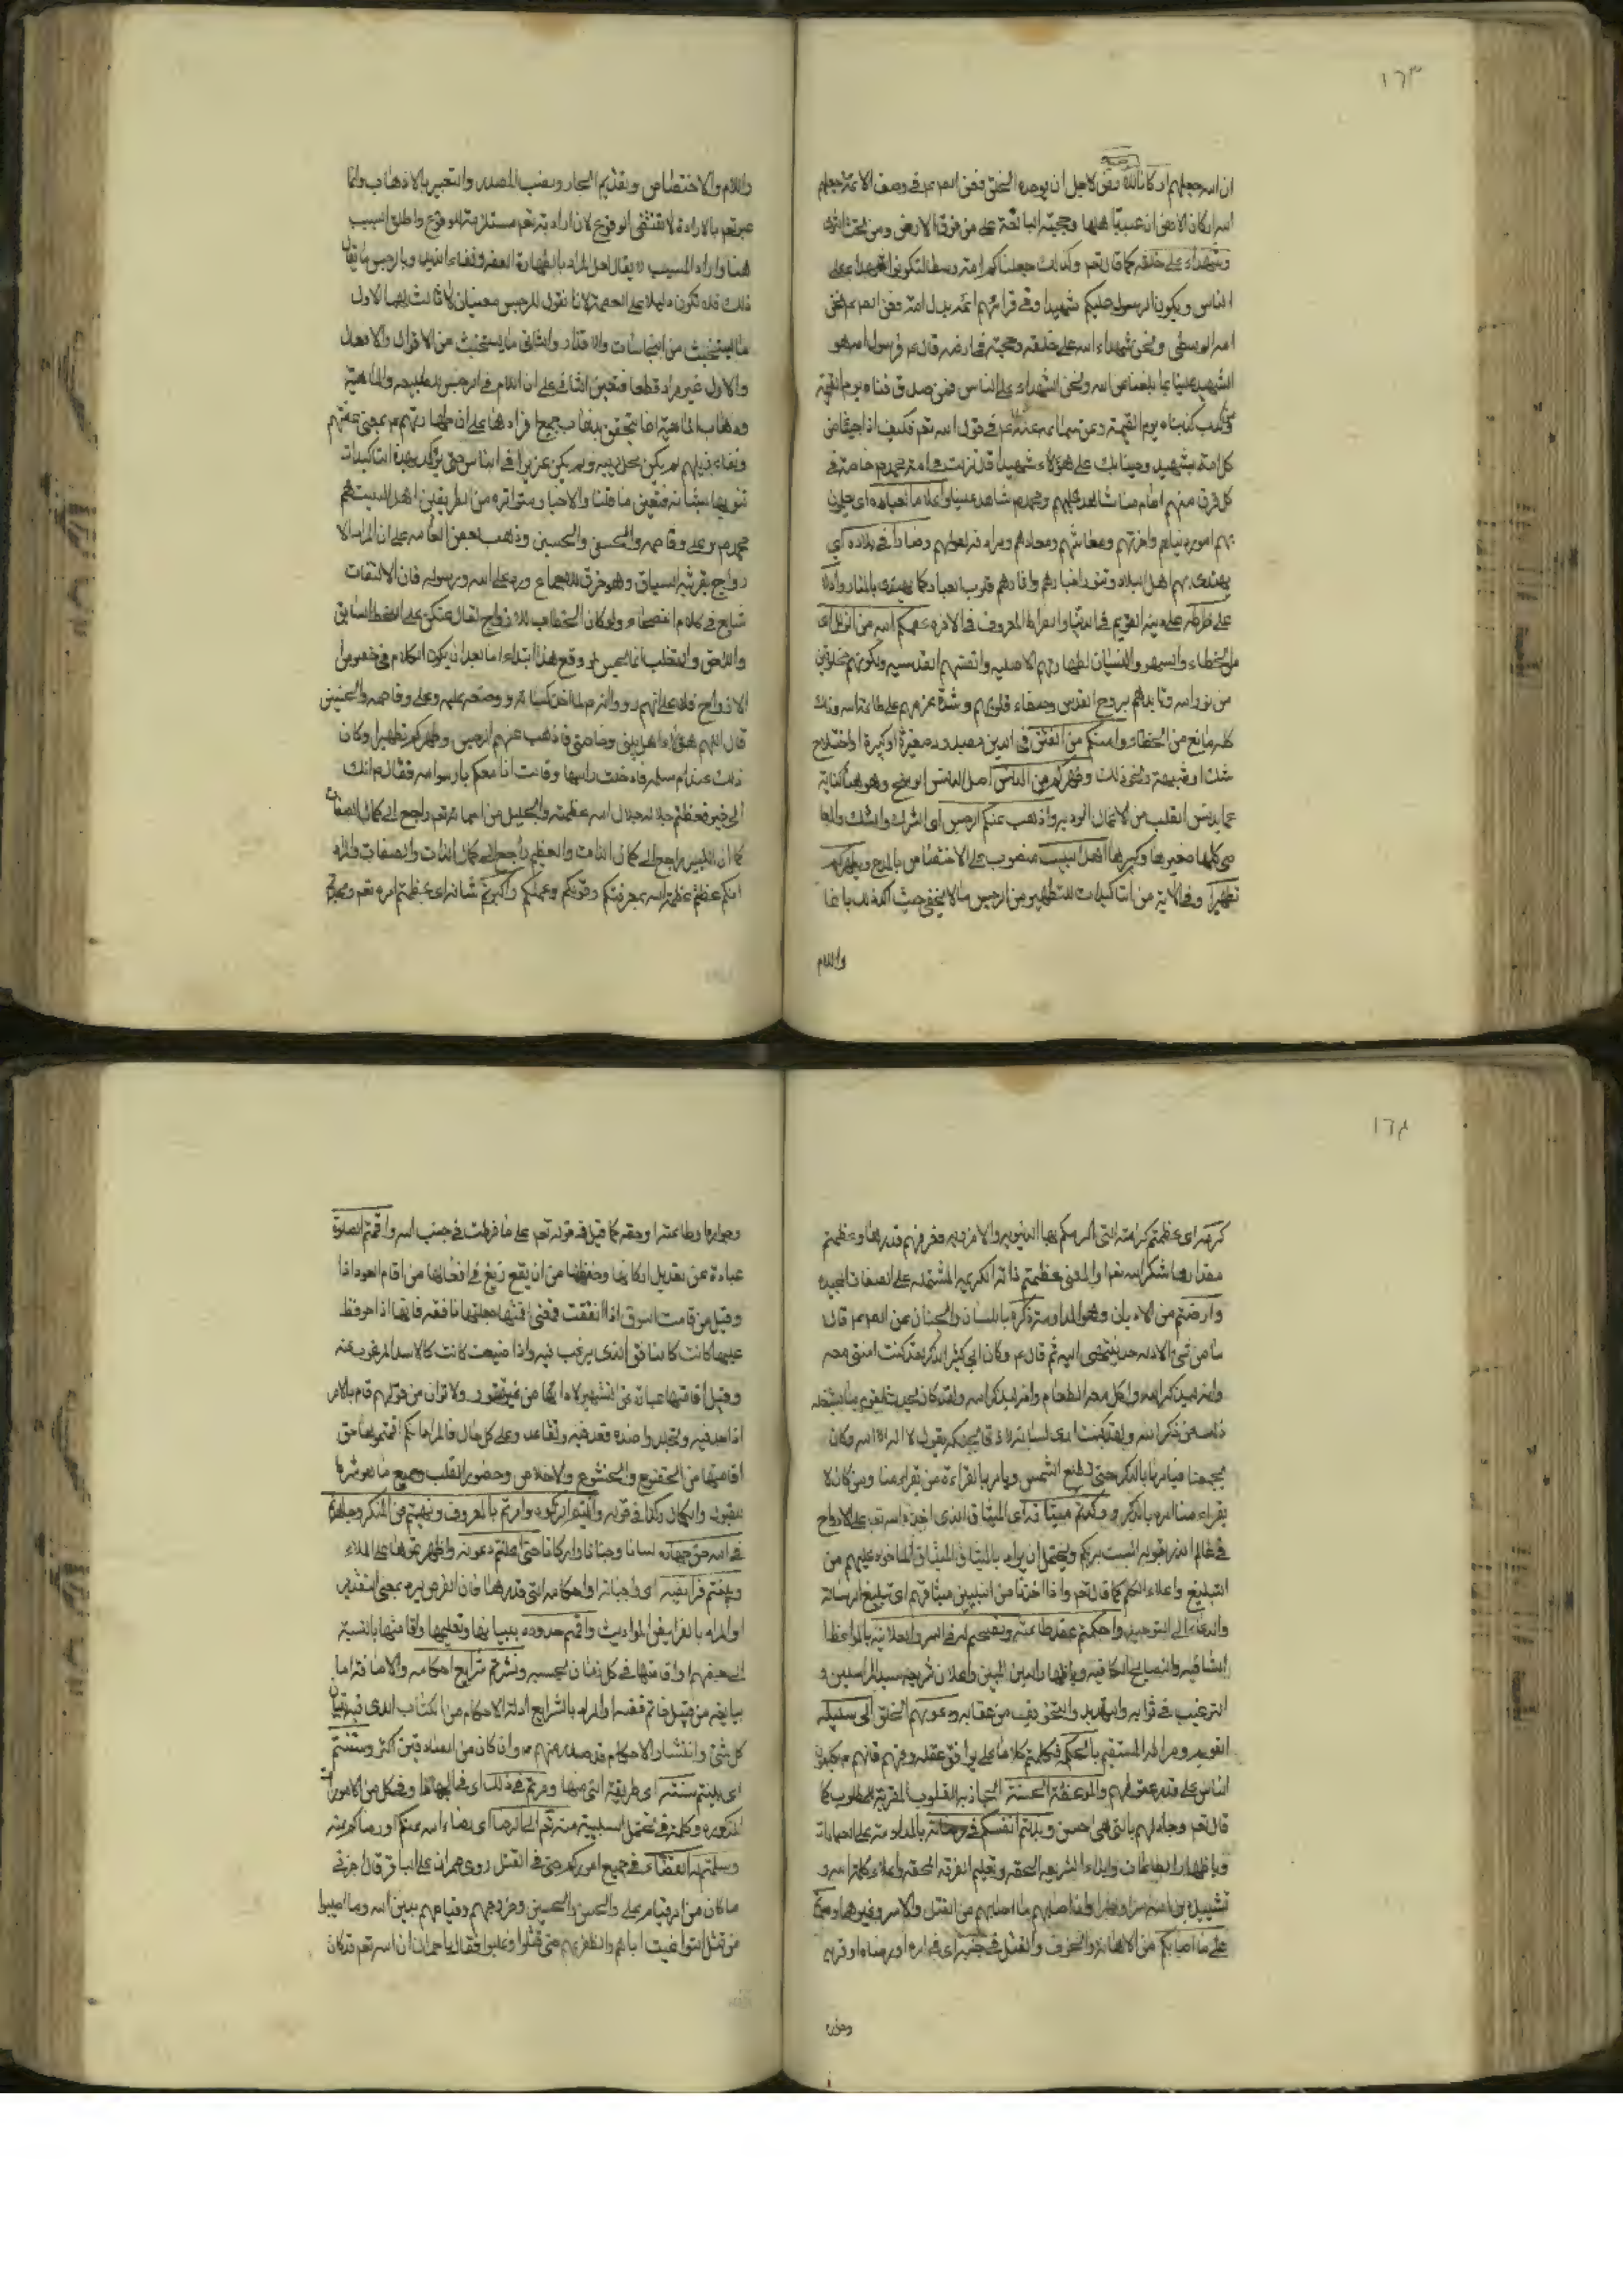 ١٦٣
ان الله جعلهم اركانا لتوحيده وفى لاجل ان يوحده الخلق فعن الصم عم فى وصف الائمة جعلهم
الله اركان الارض ان تميد باهلها وحجته البالغة على من فوق الارض ومن تحت الثرى
وشهداء على خلقه كما قال تعم وكذلك جعلناكم امة وسطا لتكونوا شهداء على
الناس ويكون الرسول عليكم شهيدا وفى قرائتهم ائمة بدل امة وفعن الصم عم نحن
امة الوسطى ونحن شهداء الله على خلقه وحجته فى ارضه قال عم فرسول الله هو
الشهيد علينا بما بلغنا عن الله ونحن الشهداء على الناس فمن صدق صدقناه يوم القيمة
ومن كذب كذبناه يوم القيمة وعن سماعه عنه عم فى قول الله تعم فكيف اذا جئنا من
كل امة بشهيد وجئنا بك على هؤلاء شهيدا قال نزلت فى امة محمد ص خاصة فى
كل قرن منهم امام منا شاهد عليهم ومحمد ص شاهد علينا واعلاما لعباده اى يعلمون
بهم امور دنياهم واخرتهم ومعاشهم ومعادهم ومنارا فى بلاده اى
يهتدى بهم اهل البلاد
على صراطه على دينه القويم فى الدنيا والصراط المعروف فى الاخرة عصمكم الله من الزلل اى
من الخطاء والسهو والنسيان لطهارتهم الاصلية وانفسهم القدسية ولكونهم مخلوقين
من نور الله وتايدهم بروح القدس وصفاء قلوبهم وشدة عزمهم على طاعة الله وذلك
كله مانع من الخطاء وامنكم من الفتن فى الدين صغيرة او كبيرة او اختلاج
شك او شبهة ونحو ذلك وطهركم من الدنس اصل الدنس الوسخ وهو هنا كناية
عما يدنس القلب من الاعمال الردية واذهب عنكم الرجس اى الشرك والشك والمعا
صى كلها صغيرها وكبيرها اهل البيت منصوب على الاختصاص بالمدح ويطهركم
تطهيرا وفى الاية من التاكيدات للتطهير من الرجس ما لا يخفى حيث اكد ذلك بانما
واللام
واللام والاختصاص وتقديم الجار ونصب المصدر والتعبير بالاذهاب وانما
عبر تعم بالارادة لا تقتضى الوقوع لان ارادته تعم مستلزمة للوقوع واطلق السبب
هنا واراد المسبب لا يقال لعل المراد بالطهارة العفو وفناء الذنب وبالرجس ما يقابل
ذلك فلا تكون دليلا على العصمة لانا نقول للرجس معنيان لا ثالث لهما الاول
ما يستخبث من النجاسات والاقذار والثانى ما يستخبث من الاقوال والافعال
والاول غير مراد قطعا فتعين الثانى على ان اللام فى الرجس للطبيعة والماهية
وذهاب الماهية انما يتحقق بذهاب جميع افرادها على ان طهارتهم عم بمعنى عفتهم
ونقاء ذيلهم لم يكن محل ريبة ولم يكن عزيزا فى الناس حتى يؤكد بهذه التاكيدات
تنويها بشانه فتعين ما قلنا والاخبار متواترة من الطريقين اهل البيت هم
محمد ص وعلى وفاطمه والحسن والحسين وذهب بعض العامه على ان المراد الا
زواج بقرينة السياق وهو خرق للاجماع ورد على الله ورسوله فان الالتفات
شايع فى كلام الفصحاء ولو كان الخطاب للازواج لقال عنكن على النمط السابق
واللاحق والتغليب انما يحسن لو وقع هذا ابتداء اما بعد ان يكون الكلام فى خصوص
الازواج فلا على انهم رووا انه ص لما اخذ كساءه ووضعه عليه وعلى وفاطمه والحسنين
قال اللهم هؤلاء اهل بيتى وخاصتى فاذهب عنهم الرجس وطهرهم تطهيرا وكان
ذلك عند ام سلمه فادخلت راسها وقالت انا معكم يا رسول الله فقال ص انك
الى خير فعظمتم جلاله جلال الله عظمته والجليل من اسمائه تعم راجع الى كمال الصفات
كما ان الكبير راجع الى كمال الذات والعظيم راجع الى كمال الذات والصفات والمراد
انكم عظمتم عظمة الله بمعرفتكم وقولكم وعملكم واكبرتم شانه اى عظمتم امره تعم ومجدتم
١٦٤
كرمه اى عظمتم كرامته التى اكرمكم بها الدنيويه والاخرويه فعرفتم قدرها وعظمتم
مقدارها شكرا لله تعم او المعنى عظمتم ذاته الكريمه المشتمله على الصفات المجيده
وادمنتم من الادمان وهو المداومة ذكره باللسان والجنان عن الصم عم قال
ما من شى الا وله حد ينتهى اليه ثم قال عم وكان ابى كثير الذكر لقد كنت امشى معه
وانه ليذكر الله واكل معه الطعام وانه ليذكر الله ولقد كان يحدث القوم ما يشغله
ذلك عن ذكر الله ولقد كنت ارى لسانه لازقا بحنكه يقول لا اله الا الله وكان
يجمعنا فيامرنا بالذكر حتى تطلع الشمس ويامر بالقراءة من يقرا منا ومن كان لا
يقراء منا امره بالذكر ووكدتم ميثاقه اى الميثاق الذى اخذه الله تعم على الارواح
فى عالم الذر بقوله الست بربكم ويحتمل ان يراد بالميثاق الميثاق الماخوذ عليهم من
التبليغ واعلاء الكلم كما قال تعم واذ اخذنا من النبيين ميثاقهم اى تبليغ الرسالة
والدعاء الى التوحيد واحكمتم عقد طاعته ونصحتم له فى السر والعلانية بالمواعظ
الشافيه والنصايح الكافيه وباظهار الدين المبين واعلان شريعة سيد المرسلين و
الترغيب فى ثوابه والتهديد والتخويف من عقابه ودعوتهم الخلق الى سبيله
القويم وصراطه المستقيم بالحكمة فكلمتم كلاما على يوافق عقله وفهم فانهم عم يكلمون
الناس على قدر عقولهم والموعظة الحسنة الجاذبة القلوب المقربة للمطلوب كما
قال تعم وجادلهم بالتى هى احسن وبذلتم انفسكم فى مرضاته بالمداومة على العبادات
وباظهار الطاعات وابداء الشريعة الحقه وتعليم الفرقه المحقه واعلاء كلمة الله و
تشييد دين الله سرا وجهارا ولذا اصابهم ما اصابهم من القتل والاسر وغيرها وصبرتم
على ما اصابكم من الاهانة والخوف والقتل فى جنبه اى فى امره او رضاه او قربه
وجواره
وجواره او طاعته او حقه كما قيل فى قوله تعم على ما فرطت فى جنب الله واقمتم الصلوة
عبادة عن تعديل اركانها وحفظها من ان يقع زيغ فى افعالها من اقام العود اذا
وقيل من قامت السوق اذا نفقت فمعنى اقمتها جعلتها نافقه فانها اذا حوفظ
عليها كانت كالنافق الذى يرغب فيه واذا ضيعت كانت كالكاسد المرغوب عنه
وقيل اقامتها عبارة عن التشمر لادائها من غير فتور ولا توان من قولهم قام بالامر
اذا جد فيه وتجلد وضده قعد فيه وتقاعد وعلى كل حال فالمراد انكم اقمتموها حق
اقامتها من الخضوع والخشوع والاخلاص وحضور القلب وجميع ما هو شرط
للقبول والكمال وكذا فى قوله واتيتم الزكوة وامرتم بالمعروف ونهيتم عن المنكر وجاهدتم
فى الله حق جهاده لسانا وجنانا واركانا حتى اعلنتم دعوته واظهرتموها على الملاء
وبينتم فرايضه اى واجباته او احكامه التى قدرها فان الفرض يرد بمعنى التقدير
او المراد بالفرايض المواريث واقمتم حدوده ببيانها وتعليمها واقامتها بالنسبة
الى بعضهم او اقامتها فى كل زمان بحسبه ونشرتم شرايع احكامه والاضافة اما
بيانية من قبيل خاتم فضة او المراد بالشرايع ادلة الاحكام من الكتاب الذى فيه تبيان
كل شئ وانتشار الاحكام قد صدر منهم عم وان كان من الصادقين اكثر وسننتم
اى بينتم سنته اى طريقته التى منها وصرتم فى ذلك اى فى الجهاد او فى كل من الامور
المذكوره وكلمة فى تحتمل السببية منه تعم الى الرضا اى رضاء الله عنكم او رضاكم عنه
وسلمتم له القضاء فى جميع اموركم حتى فى القتل روى حمران عن الباقر قال جزت
ما كان من امر قيام على والحسن والحسين وخروجهم وقيامهم بدين الله وما اصيبوا
من قتل الطواغيت اياهم والظفر بهم حتى قتلوا وغلبوا فقال يا حمران ان الله تعم قد كان